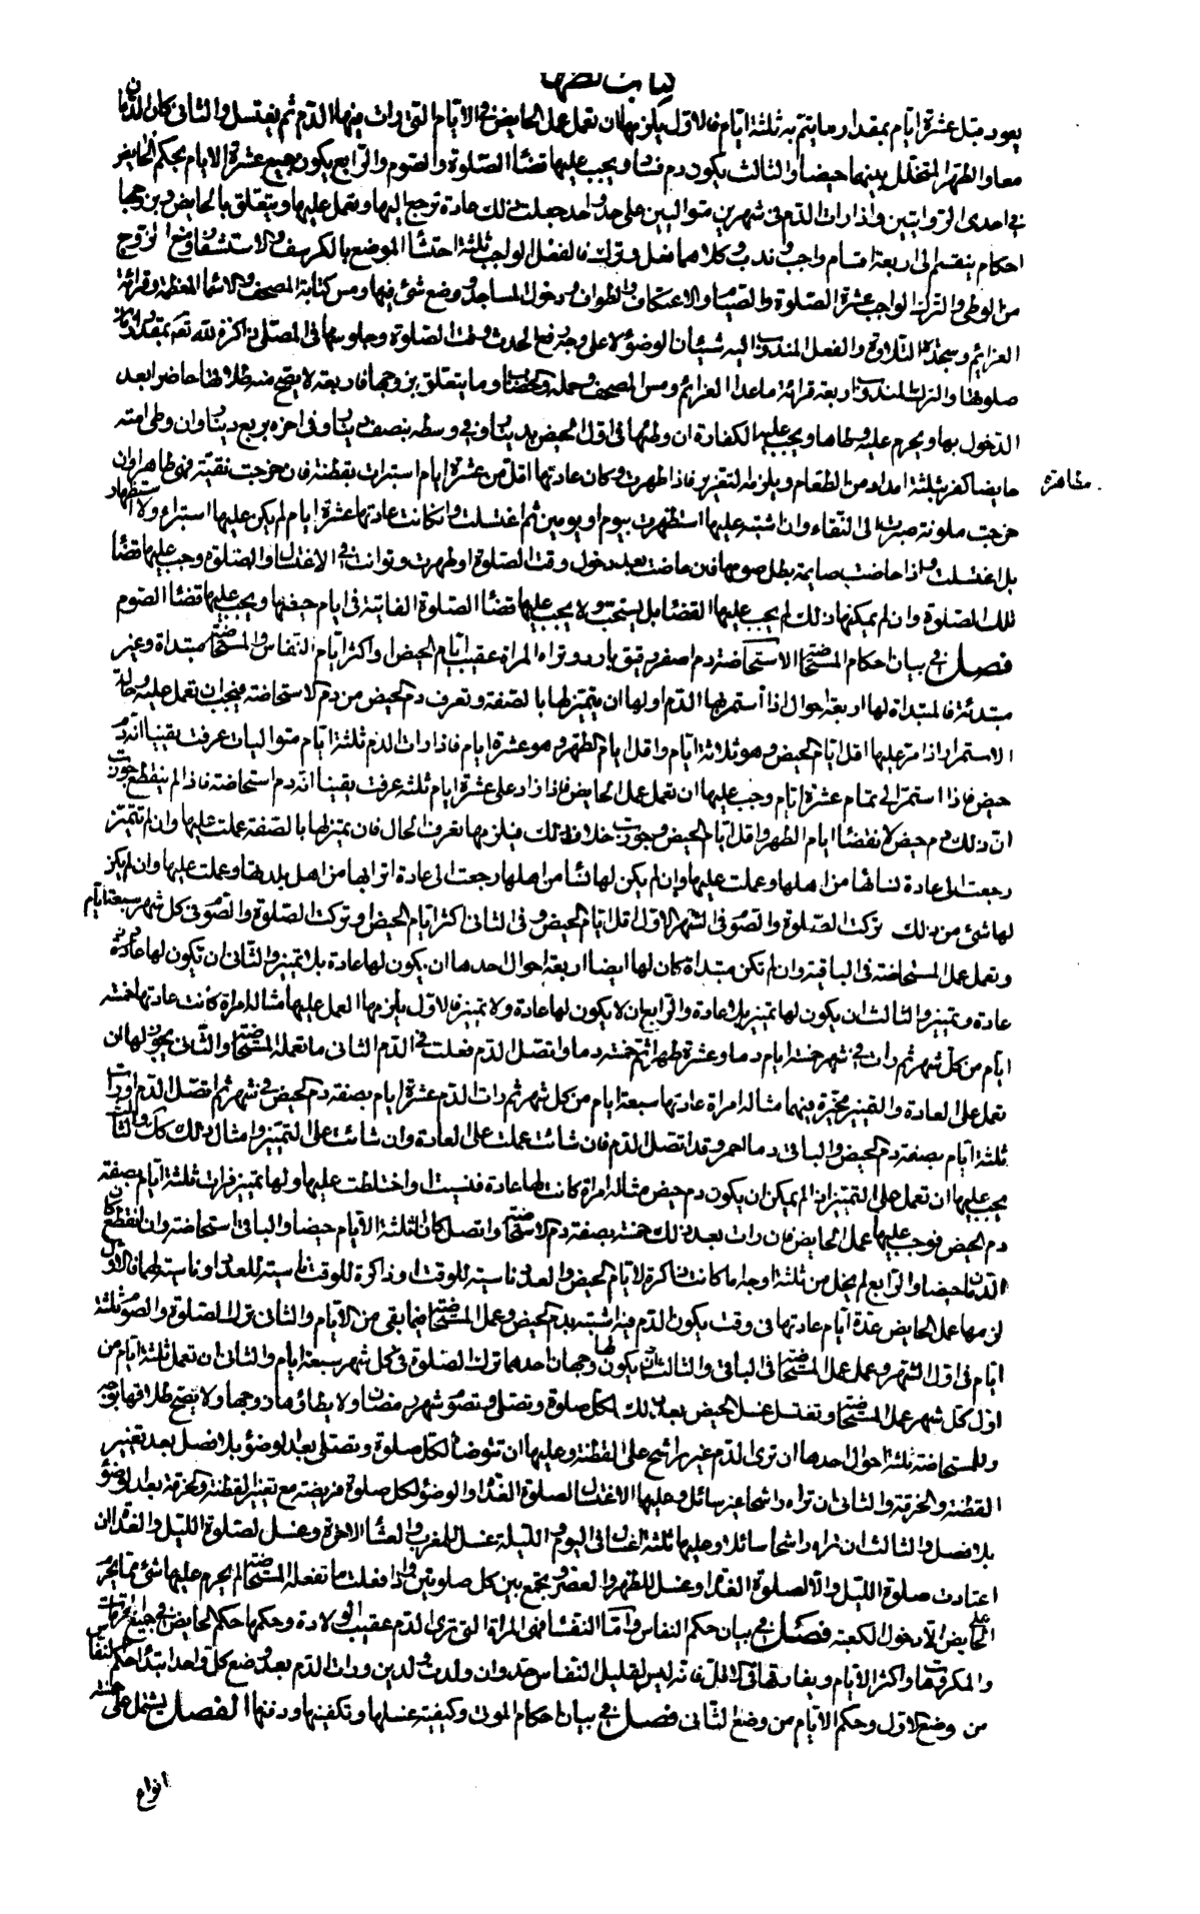 كتاب الطهارة
يعود قبل عشرة ايام بمقدار ما يتم به ثلثة ايام فالاول يلزمها ان تعمل عمل الحايض في الايام التي رات فيها الدم ثم يغتسل والثاني كان الدمان
معا والطهر المتخلل بينهما حيضا والثالث يكون دم فساد ويجب عليها قضاء الصلوة والصوم والرابع يكون جميع عشرة الايام بحكم الحايض
في احدى الروايتين واذا رات الدم في شهرين متواليين على حد واحد جعلت ذلك عادة ترجع اليها وتعمل عليها ويتعلق بالحايض وبزوجها
احكام ينقسم الى اربعة اقسام واجب وندب وكلاهما فعل وترك فالفعل الواجب ثلثة احتشاء الموضع بالكرسف والاستثفار ومنع الزوج
من الوطي والترك الواجب عشرة الصلوة والصيام والاعتكاف والطواف ودخول المساجد ووضع شئ فيها ومس كتابة المصحف والاسماء المعظمة وقرائة
العزائم وسجدة التلاوة والفعل المندوب اليه شيئان الوضوء لا على وجه رفع الحدث وقت الصلوة وجلوسها في المصلى ذاكرة لله تعم بمقدار زمان
صلوتها والترك المندوب اربعة قرائة ماعدا العزائم ومس المصحف وحمله والخضاب وما يتعلق بزوجها فاربعة لا يصح منه طلاقها حاضرا بعد
الدخول بها ويحرم عليه وطاها ويجب عليه الكفارة ان وطئها في اول الحيض بدينار وفي وسطه بنصف دينار وفي اخره بربع دينار وان وطى امته
حايضا كفر بثلثة امداد من الطعام ويلزمه التعزير فاذا طهرت وكان عادتها اقل من عشرة ايام استبرات بقطنة فان خرجت نقية فهي طاهر وان
خرجت ملونة صبرت الى النقاء وان اشتبه عليها استظهرت بيوم او يومين ثم اغتسلت وان كانت عادتها عشرة ايام لم يكن عليها استبراء ولا استظهار
بل اغتسلت واذا حاضت صايمة بطل صومها فان حاضت بعد دخول وقت الصلوة او طهرت وتوانت في الاغتسال والصلوة وجب عليها قضاء
تلك الصلوة وان لم يمكنها ذلك لم يجب عليها القضاء بل يستحب ولا يجب عليها قضاء الصلوة الفايتة في ايام حيضها ويجب عليها قضاء الصوم
فصل في بيان احكام المستحاضة الاستحاضة دم اصفر رقيق بارد وتراه المراة عقيب ايام الحيض او اكثر ايام النفاس والمستحاضة مبتداة وغير
مبتدئة فالمبتداة لها اربعة احوال اذا استمر لها الدم اولها ان يتميز لها بالصفة وتعرف دم الحيض من دم الاستحاضة فيجب ان تعمل عليه وحالة
الاستمرار اذا مر عليها اقل ايام الحيض وهو ثلاثة ايام واقل ايام الطهر وهو عشرة ايام فاذا رات الدم ثلثة ايام متواليات عرفت يقينا انه دم
حيض فاذا استمر الى تمام عشرة ايام وجب عليها ان تعمل عمل الحايض فاذا زاد على عشرة ايام ثلثة عرفت يقينا انه دم استحاضة فاذا لم ينقطع جوزت
ان ذلك دم حيض لانقضاء ايام الطهر واقل ايام الحيض وجوزت خلاف ذلك فيلزمها تعرف الحال فان يتميز لها بالصفة عملت عليها وان لم تتميز
رجعت الى عادة نسائها من اهلها وعملت عليها وان لم يكن لها نساء من اهلها رجعت الى عادة اترابها من اهل بلدها وعملت عليها وان لم يكن
لها شئ من ذلك تركت الصلوة والصوم في الشهر الاول اقل ايام الحيض وفي الثاني اكثر ايام الحيض او تركت الصلوة والصوم في كل شهر سبعة ايام
وتعمل عمل المستحاضة في الباقية وان لم تكن مبتداة كان لها ايضا اربعة احوال احدها ان يكون لها عادة بلا تميز والثاني ان تكون لها عادة
عادة وتميز والثالث ان يكون لها تميز بلا عادة والرابع ان لا يكون لها عادة ولا تميز فالاول يلزمها العمل عليها مثاله امراة كانت عادتها خمسة
ايام من كل شهر ثم رات في شهر خمسة ايام دما وعشرة طهرا ثم خمسة دما واتصل الدم فعلت في الدم الثاني ما تعمله المستحاضة والثاني يجوز لها ان
تعمل على العادة والتميز مخيرة بينهما مثاله امراة عادتها سبعة ايام من كل شهر ثم رات الدم عشرة ايام بصفة دم الحيض في شهر ثم اتصل الدم او رات
ثلثة ايام بصفة دم الحيض والباقي دما احمر وقد اتصل الدم فان شائت عملت على العادة وان شائت على التميز وامثال ذلك كك والثالث
يجب عليها ان تعمل على التميز ان لم يمكن ان يكون دم حيض مثاله امراة كانت لها عادة فنسيت او اختلطت عليها ولها تميز فرات ثلثة ايام بصفة
دم الحيض فوجب عليها عمل الحايض فان رات بعد ذلك خمسة بصفة دم الاستحاضة واتصل كان الثلثة الايام حيضا والباقي استحاضة وان انقطع كان
الدمان حيضا والرابع لم يخل من ثلثة اوجه اما كانت ذاكرة لايام الحيض والعدد ناسية للوقت او ذاكرة للوقت ناسية للعدد او ناسية لهما فالاول
لزمها عمل الحايض عدة ايام عادتها في وقت يكون الدم فيه اشبه بدم الحيض وعمل المستحاضة فيما بقى من الايام والثاني ترك الصلوة والصوم ثلثة
ايام في اول الشهر وعمل عمل المستحاضة في الباقي والثالث يكون لها وجهان احدهما ترك الصلوة في كل شهر سبعة ايام والثاني ان تعمل ثلثة ايام من
اول كل شهر عمل المستحاضة وتغتسل غسل الحيض بعد ذلك لكل صلوة وتصلي وتصوم شهر رمضان ولا يطاؤها زوجها ولا يصح طلاقها بوجه
وللمستحاضة ثلثة احوال احدها ان ترى الدم غير راشح على القطنة وعليها ان تتوضا لكل صلوة وتصلي بعد الوضوء بلا فصل بعد تغيير
القطنة والخرقة والثاني ان تراه راشحا غير سائل وعليها الاغتسال لصلوة الغداة والوضوء لكل صلوة فريضة مع تغيير القطنة والخرقة بعد الوضوء
بلا فصل والثالث ان تراه راشحا سائلا وعليها ثلثة اغسال في اليوم والليلة غسل للمغرب والعشاء الاخرة وغسل لصلوة الليل والغداة ان
اعتادت صلوة الليل والا لصلوة الغداة وغسل للظهر والعصر وتجمع بين كل صلوتين واذا فعلت ما تفعله المستحاضة لم يحرم عليها شئ مما يحرم
على الحايض الا دخول الكعبة فصل في بيان حكم النفاس واما النفساء فهي المراة التي ترى الدم عقيب الولادة وحكمها حكم الحايض في جميع المحرمات
والمكروهات واكثر الايام ويفارقها في الاقل فانه ليس لقليل النفاس حد وان ولدت ولدين ورات الدم بعد وضع كل واحد ابتداء حكم النفاس
من وضع الاول وحكم الايام من وضع الثاني فصل في بيان احكام الموت وكيفية غسلها وتكفينها ودفنها الفصل يشتمل على خمسة
انواع